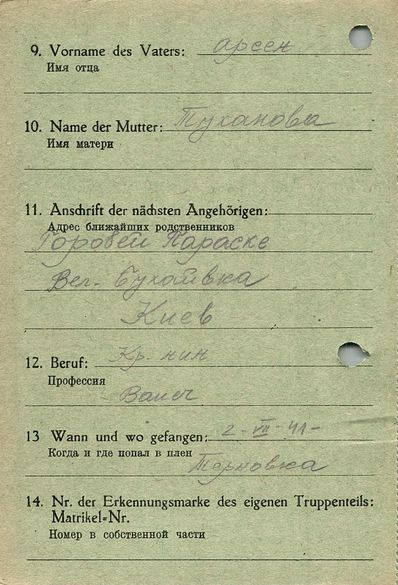 9. Vorname des Vaters: арсен
Имя отца
10. Name der Mutter: Туханова
Имя матери
11. Anschrift der nächsten Angehörigen:
Адрес ближайших родственников
Горовей Параске
Вел. Бугаївка
Киев
12. Beruf: Кр-нин
Профессия
13 Wann und wo gefangen: 2-VII-41-
Когда и где попал в плен
Терновка
14. Nr. der Erkennungsmarke des eigenen Truppenteils:
Matrikel-Nr.
Номер в собственной части